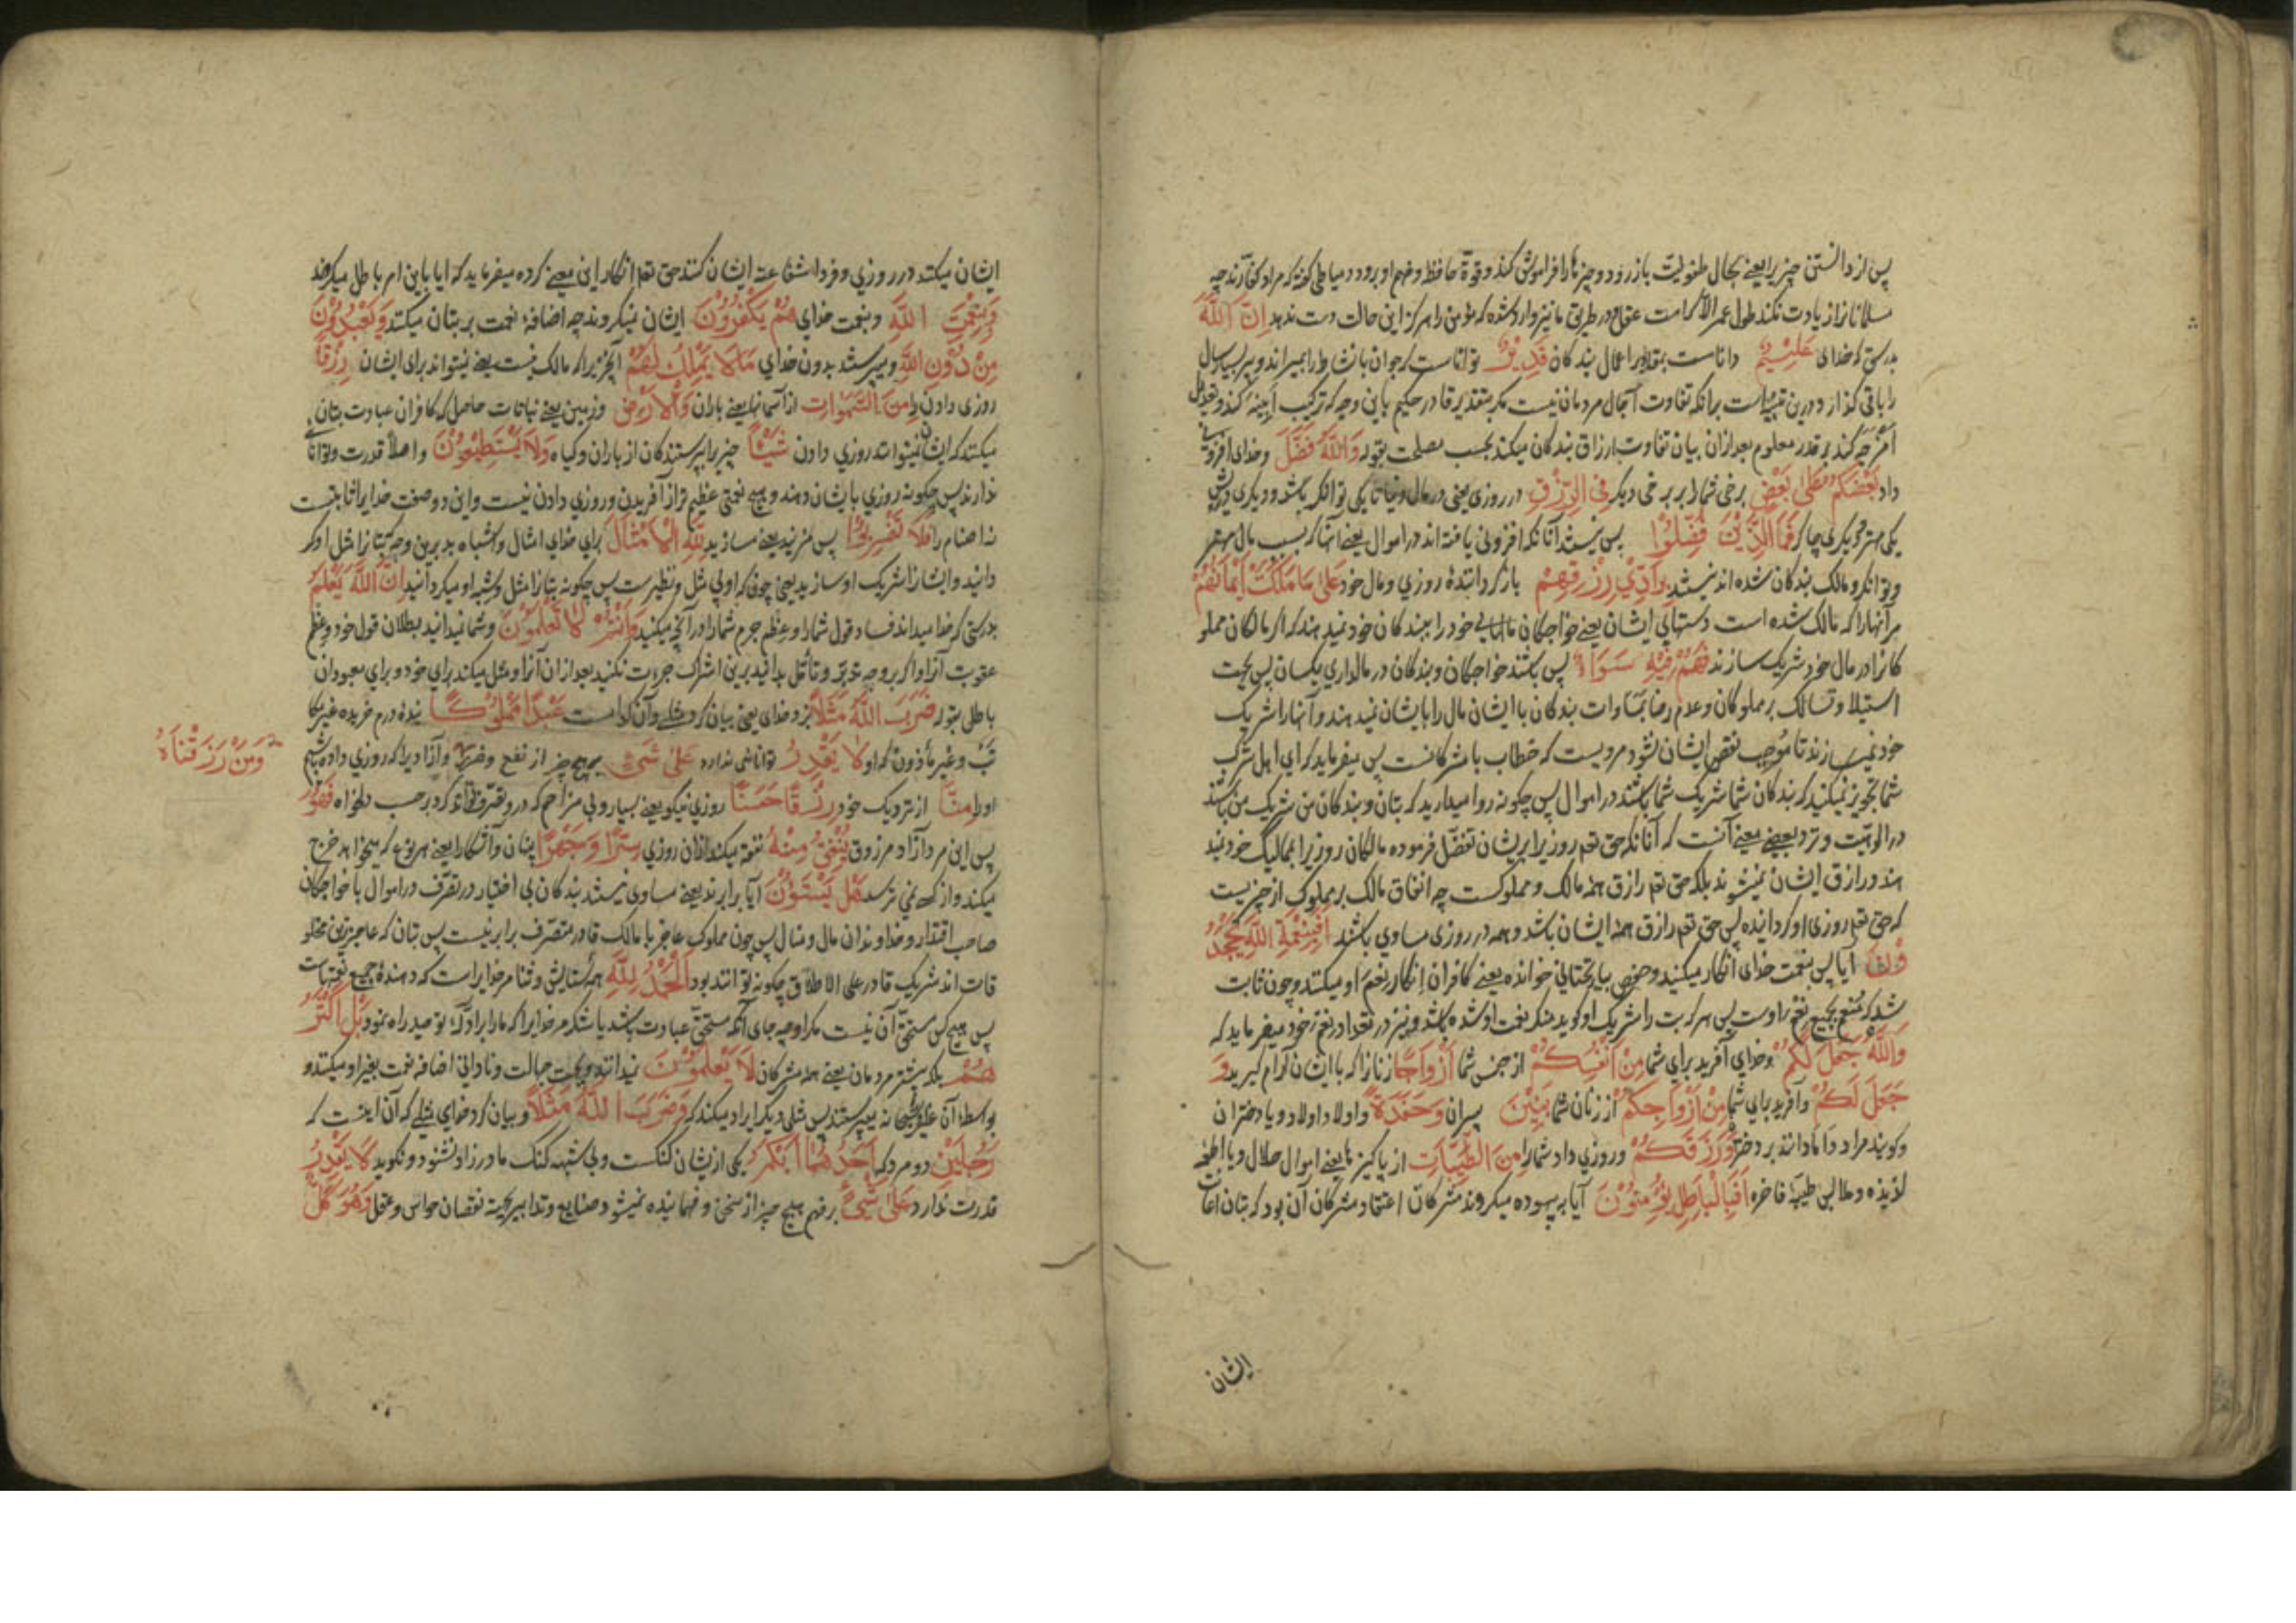 پس از دانستن چیزی یعنی بحال طفولیت باز رود و چیزها را فراموش کند و قوة حافظه و فهم او برود
مسلمانان زیادت نکند طول عمر الا کرامت عقل در طریق ما نیز وارد شده که مؤمن را هرگز این حالت دست ندهد اِنَّ اللّٰهَ
بدرستی که خدای عَلِیْمٌ دانا است بمقادیر اعمال بندکان قَدِیْرٌ توانا است که جوان بانشاط را بمیراند و پیر بسیار سال
را باقی گذارد و درین تنبیه است برانکه تفاوت آجال مردمان نیست مکر بتقدیر قادر حکیم باین وجه که ترکیب ابنیه کند و تعدیل
امزجه کند بر قدر معلوم بعد ازان بیان تفاوت ارزاق بندکان میکند بحسب مصلحت بقوله وَاللّٰهُ فَضَّلَ و خدای افزونی
داد بَعْضَکُمْ عَلیٰ بَعْضٍ برخی شما را بر برخی دیکر فِی الرِّزْقِ در روزی یعنی در مال دنیا تا یکی توانکر باشد و دیکری درویش
یکی مهتر و دیکری چاکر فَمَا الَّذِیْنَ فُضِّلُوْا پس نیستند آنانکه افزونی یافته اند در اموال یعنی آنها که بسبب مال مهتر
و توانکر و مالک بندکان شده اند نیستند بِرَادِّیْ رِزْقِهِمْ باز کردانندۀ روزی و مال خود عَلیٰ مَا مَلَکَتْ اَیْمَانُهُمْ
مر آنها را که مالک شده است دستهای ایشان یعنی خواجکان مالهای خود را به بندکان خود نمیدهند که اکر مالکان مملو
کان را در مال خود شریک سازند فَهُمْ فِیْهِ سَوَاءٌ پس باشند خواجکان و بندکان در مالداری یکسان پس بجهت
استیلا و تسالک بر مملوکان و عدم رضا بمساوات بندکان با ایشان مال را بایشان نمیدهند و آنها را شریک
خود نمیسازند تا موجب نقص ایشان نشود مرویست که خطاب با مشرکانست پس میفرماید که ای اهل شرک
شما تجویز نمیکنید که بندکان شما شریک شما باشند در اموال پس چکونه روا میدارید که بتان و بندکان من شریک من باشند
در الوهیت و نزد بعضی معنی آنست که آنانکه حق تعم روزی را بر ایشان تفضل فرموده مالکان روزی را بممالیک خود نمید
هند و رازق ایشان نمیشوند بلکه حق تعم رازق همه مالک و مملوکست چه انفاق مالک بر مملوک از چیزیست
که حق تعم روزی او کردانیده پس حق تعم رازق همه ایشان باشد و همه در روزی مساوی باشند اَفَبِنِعْمَةِ اللّٰهِ یَجْحَدُ
وْنَ آیا پس بنعمت خدای انکار میکنید و حفص بیای تحتانی خوانده یعنی کافران انکار نعم او میکنند و چون ثابت
شد که منعم بجمیع نعم اوست پس هر که بت را شریک او کوید منکر نعمت او شده باشد و نیز در تعداد نعم خود میفرماید که
وَاللّٰهُ جَعَلَ لَکُمْ و خدای آفرید برای شما مِنْ اَنْفُسِکُمْ از جنس شما اَزْوَاجًا زنانرا که با ایشان آرام کیرید وَ
جَعَلَ لَکُمْ و آفرید برای شما مِنْ اَزْوَاجِکُمْ از زنان شما بَنِیْنَ پسران وَحَفَدَةً و اولاد اولاد و یا دختران
و کویند مراد دامادانند بر دختر وَرَزَقَکُمْ و روزی داد شما را مِنَ الطَّیِّبَاتِ از پاکیزها یعنی اموال حلال و یا اطعمه
لذیذه و ملابس طیبۀ فاخره اَفَبِالْبَاطِلِ یُؤْمِنُوْنَ آیا به بیهوده میکروند مشرکان اعتقاد مشرکان آن بود که بتان اعانت
ایشان
ایشان میکنند در روزی و فردا شفاعت ایشان کنند حق تعم انکار این معنی کرده میفرماید که ایا باین امر باطل میکروند
وَبِنِعْمَتِ اللّٰهِ و بنعمت خدای هُمْ یَکْفُرُوْنَ ایشان نمیکروند چه اضافۀ نعمت بر بتان میکنند وَیَعْبُدُوْنَ
مِنْ دُوْنِ اللّٰهِ و میپرستند بدون خدای مَا لَا یَمْلِکُ لَهُمْ آنچیزی را که مالک نیست یعنی نمیتواند برای ایشان رِزْقًا
روزی دادن را مِنَ السَّمٰوَاتِ از آسمانها یعنی باران وَالْاَرْضِ و زمین یعنی نباتات حاصل که کافران عبادت بتان
میکنند که ایشان نمیتوانند روزی دادن شَیْئًا چیزی را پرستندکان از باران و کیاه وَلَا یَسْتَطِیْعُوْنَ و اصلا قدرت و توانائی
ندارند پس چکونه روزی بایشان دهند و هیچ نعمتی عظیم تر از آفریدن و روزی دادن نیست و این دو صفت خدایرا ثابتست
نه اصنام را فَلَا تَضْرِبُوْا پس مزنید یعنی مسازید لِلّٰهِ الْاَمْثَالَ برای خدای امثال و اشباه بدین وجه که بتانرا مثل او کر
دانید و ایشانرا شریک او سازید یعنی چون که او بی مثل و نظیرست پس چکونه بتانرا مثل و شبه او میکردانید اِنَّ اللّٰهَ یَعْلَمُ
بدرستی که خدا میداند فساد قول شما را و عظم جرم شما را در آنچه میکنید وَاَنْتُمْ لَا تَعْلَمُوْنَ و شما نمیدانید بطلان قول خود و عظم
عقوبت آنرا و اکر بر وجه تدبر و تأمل بدانید برین اشراک جرءت نکنید بعد ازان آنرا ومثل میکند برای خود و برای معبودان
باطل بقوله ضَرَبَ اللّٰهُ مَثَلًا بزد خدای یعنی بیان کرد مثلی و آن کدامست عَبْدًا مَمْلُوْکًا بندۀ درم خریده غیر مکا
تب و غیر مأذون که او لَا یَقْدِرُ توانائی ندارد عَلیٰ شَیْءٍ بر هیچ چیز از نفع وضر و آزادیرا که روزی داده باشیم
وَمَنْ رَزَقْنَاهُ
او را مِنَّا از نزدیک خود رِزْقًا حَسَنًا روزی نیکو یعنی بسیار و بی مزاحم که در و تصرف تواند کرد بر حسب دلخواه فَهُوَ
پس این مرد آزاد مرزوق یُنْفِقُ مِنْهُ نفقه میکند ازان روزی سِرًّا وَجَهْرًا پنهان و آشکارا یعنی هر نوع که میخواهد خرج
میکند و از کسی نمی ترسد هَلْ یَسْتَوُوْنَ آیا برابرند یعنی مساوی نیستند بندکان بی اختیار در تصرف در اموال با خواجکان
صاحب اقتدار و خداوندان مال و منال پس چون مملوک عاجز با مالک قادر متصرف برابر نیست پس بتان که عاجزترین مخلو
قات اند شریک قادر علی الاطلاق چکونه توانند بود اَلْحَمْدُ لِلّٰهِ همه ستایش و ثنا مر خدایراست که دهندۀ جمیع نعمتهاست
پس هیچ کس مستحق آن نیست مکر او چه جای آنکه مستحق عبادت باشد یا شکر مر خدایرا که ما را براه توحید راه نمود بَلْ اَکْثَرُ
هُمْ بلکه بیشتر مردمان یعنی همه مشرکان لَا یَعْلَمُوْنَ نمیدانند و بجهت جهالت و نادانی اضافۀ نعمت بغیر او میکنند و
بواسطۀ آن غیر او سبحانه میپرستند پس مثلی دیکر ایراد میکند که وَضَرَبَ اللّٰهُ مَثَلًا و بیان کرد خدای مثلی که آن اینست که
رَجُلَیْنِ دو مرد که اَحَدُهُمَا اَبْکَمُ یکی ازیشان کنکست و بی شبهه کنک مادرزاد نشنود و نکوید لَا یَقْدِرُ
قدرت ندارد عَلیٰ شَیْءٍ بر فهم هیچ چیز از سخن و فهمانیده نمیشود صنایع و تدابیر بجهت نقصان حواس و عقل وَهُوَ کَلٌّ